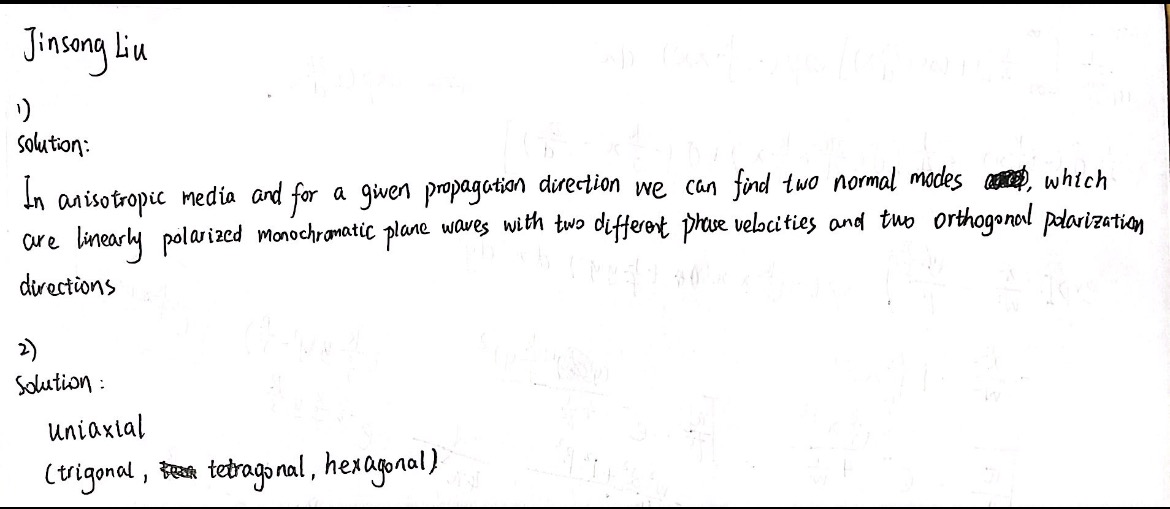 Jinsong Liu
1)
solution:
In anisotropic media and for a given propagation direction we can find two normal modes , which
are linearly polarized monochromatic plane waves with two different phase velocities and two orthogonal polarization
directions
2)
Solution :
uniaxial
(trigonal , tetragonal, hexagonal)